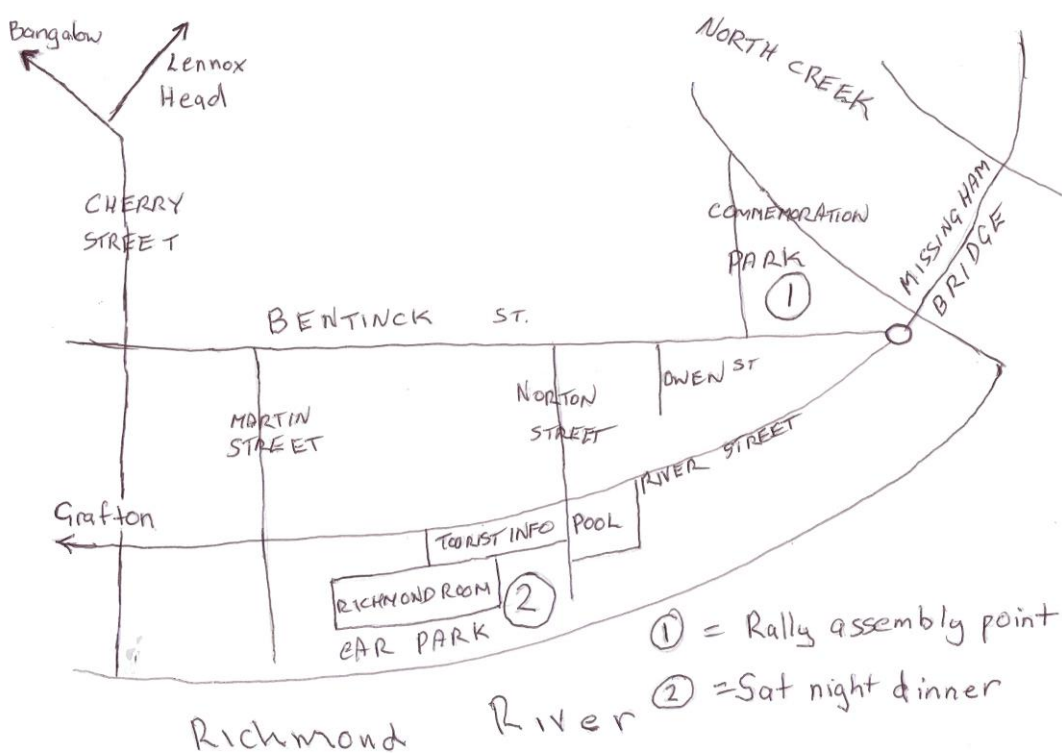 Bangalow
Lennox
Head
NORTH CREEK
CHERRY
STREET
COMMEMORATION
PARK
1
MISSINGHAM
BRIDGE
BENTINCK ST.
OWEN ST
MARTIN
STREET
NORTON
STREET
RIVER STREET
Grafton
TOURIST INFO
POOL
RICHMOND ROOM
2
CAR PARK
1 = Rally assembly point
2 = Sat night dinner
Richmond River